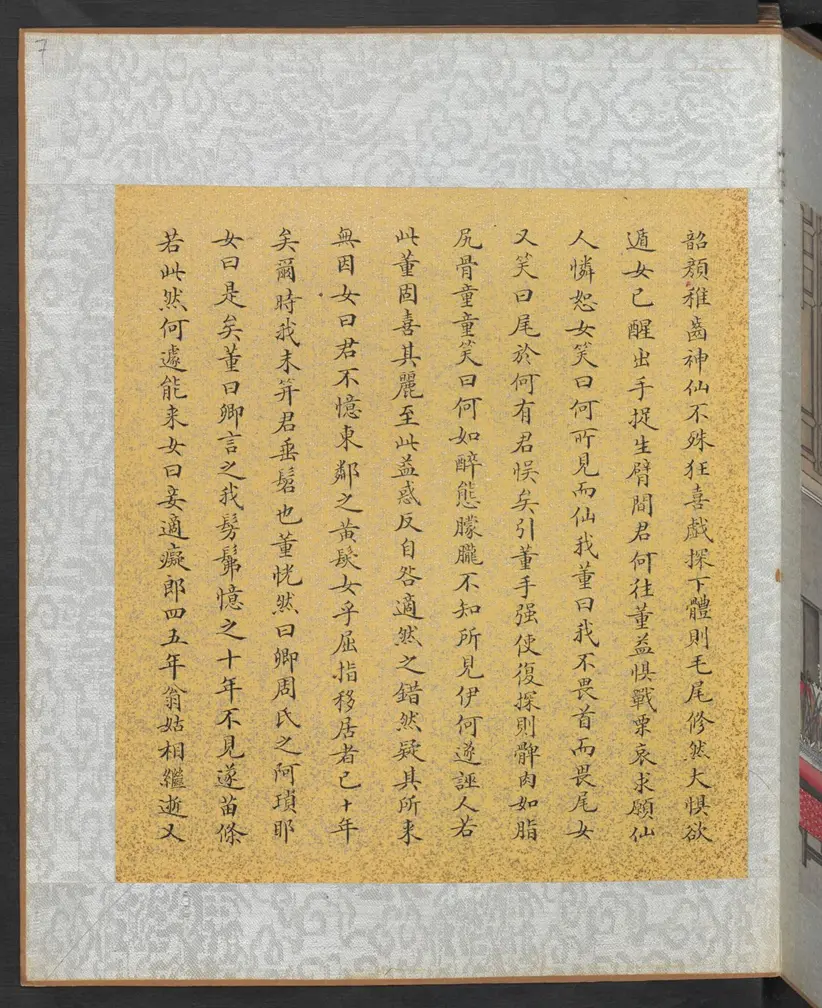 7
韶顏稚齒神仙不殊狂喜戲探下體則毛尾修然大懼欲
遁女已醒出手捉生臂問君何往董益懼戰栗哀求願仙
人憐恕女笑曰何所見而仙我董曰我不畏首而畏尾女
又笑曰尾於何有君悞矣引董手强使復探則髀肉如脂
尻骨童童笑曰何如醉態朦朧不知所見伊何遂誣人若
此董固喜其麗至此益惑反自咎適然之錯然疑其所来
無因女曰君不憶東鄰之黃髮女乎屈指移居者已十年
矣爾時我未笄君垂髫也董恍然曰卿周氏之阿瑣耶
女曰是矣董曰卿言之我髣髴憶之十年不見遂苗條
若此然何遽能来女曰妾適癡郎四五年翁姑相繼逝又